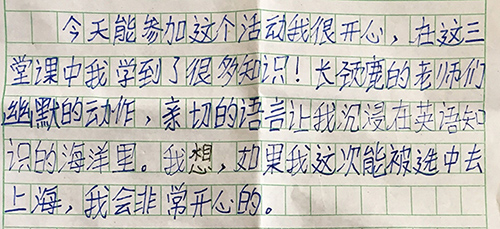 今天能参加这个活动我很开心，在这三
堂课中我学到了很多知识！长颈鹿的老师们
幽默的动作，亲切的语言让我沉浸在英语知
识的海洋里。我想，如果我这次能被选中去
上海，我会非常开心的。